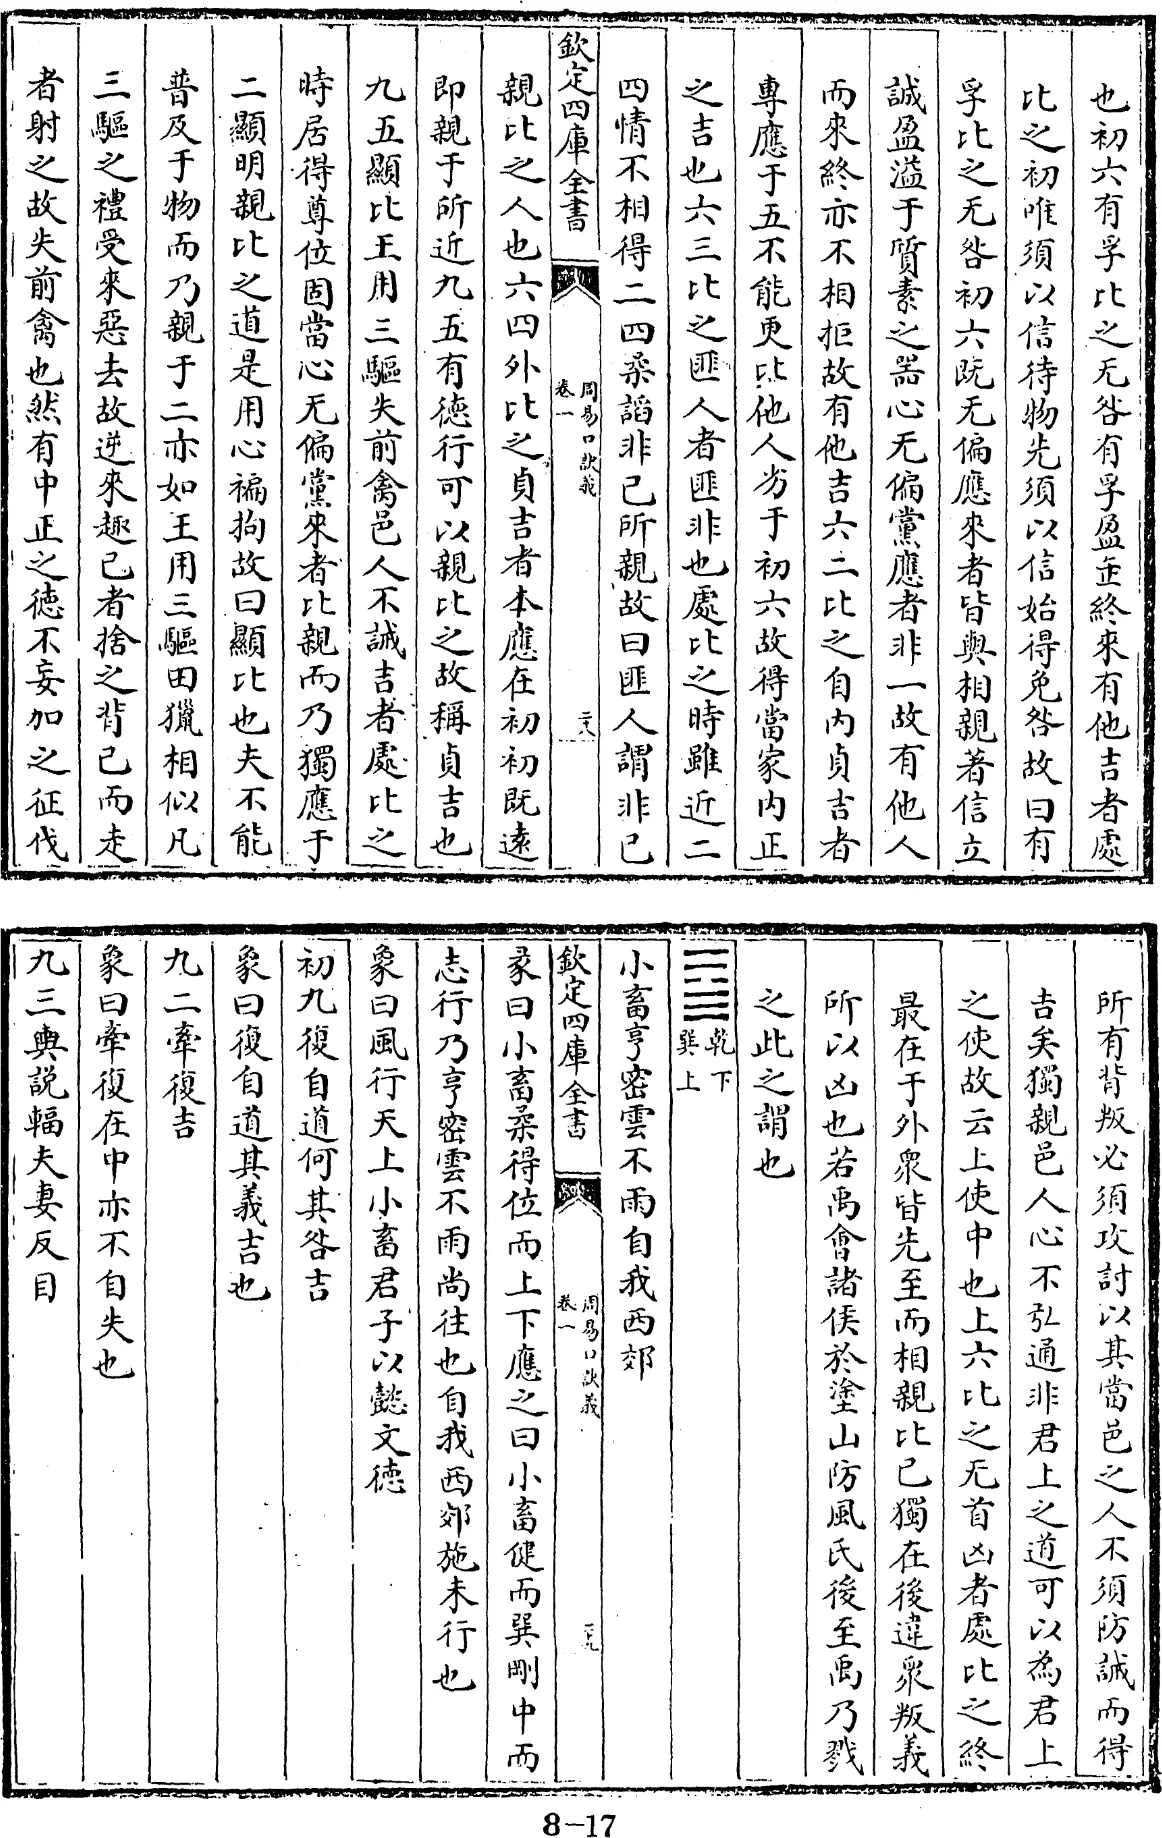 也初六有孚比之无咎有孚盈缶終來有他吉者處
比之初唯須以信待物先須以信始得免咎故曰有
孚比之无咎初六既无偏應來者皆與相親著信立
誠盈溢于質素之器心无偏黨應者非一故有他人
而來終亦不相拒故有他吉六二比之自內貞吉者
專應于五不能更比他人劣于初六故得當家內正
之吉也六三比之匪人者匪非也處比之時雖近二
四情不相得二四柔諂非己所親故曰匪人謂非己
欽定四庫全書
周易口訣義
卷一
二十八
親比之人也六四外比之貞吉者本應在初初既遠
即親于所近九五有德行可以親比之故稱貞吉也
九五顯比王用三驅失前禽邑人不誡吉者處比之
時居得尊位固當心无偏黨來者比親而乃獨應于
二顯明親比之道是用心褊拘故曰顯比也夫不能
普及于物而乃親于二亦如王用三驅田獵相似凡
三驅之禮受來惡去故逆來趣己者捨之背己而走
者射之故失前禽也然有中正之德不妄加之征伐
所有背叛必須攻討以其當邑之人不須防誡而得
吉矣獨親邑人心不弘通非君上之道可以為君上
之使故云上使中也上六比之无首凶者處比之終
最在于外衆皆先至而相親比已獨在後違衆叛義
所以凶也若禹會諸侯於塗山防風氏後至禹乃戮
之此之謂也
乾下
巽上
小畜亨密雲不雨自我西郊
欽定四庫全書
周易口訣義
卷一
二十九
彖曰小畜柔得位而上下應之曰小畜健而巽剛中而
志行乃亨密雲不雨尚往也自我西郊施未行也
象曰風行天上小畜君子以懿文德
初九復自道何其咎吉
象曰復自道其義吉也
九二牽復吉
象曰牽復在中亦不自失也
九三輿説輻夫妻反目
8-17